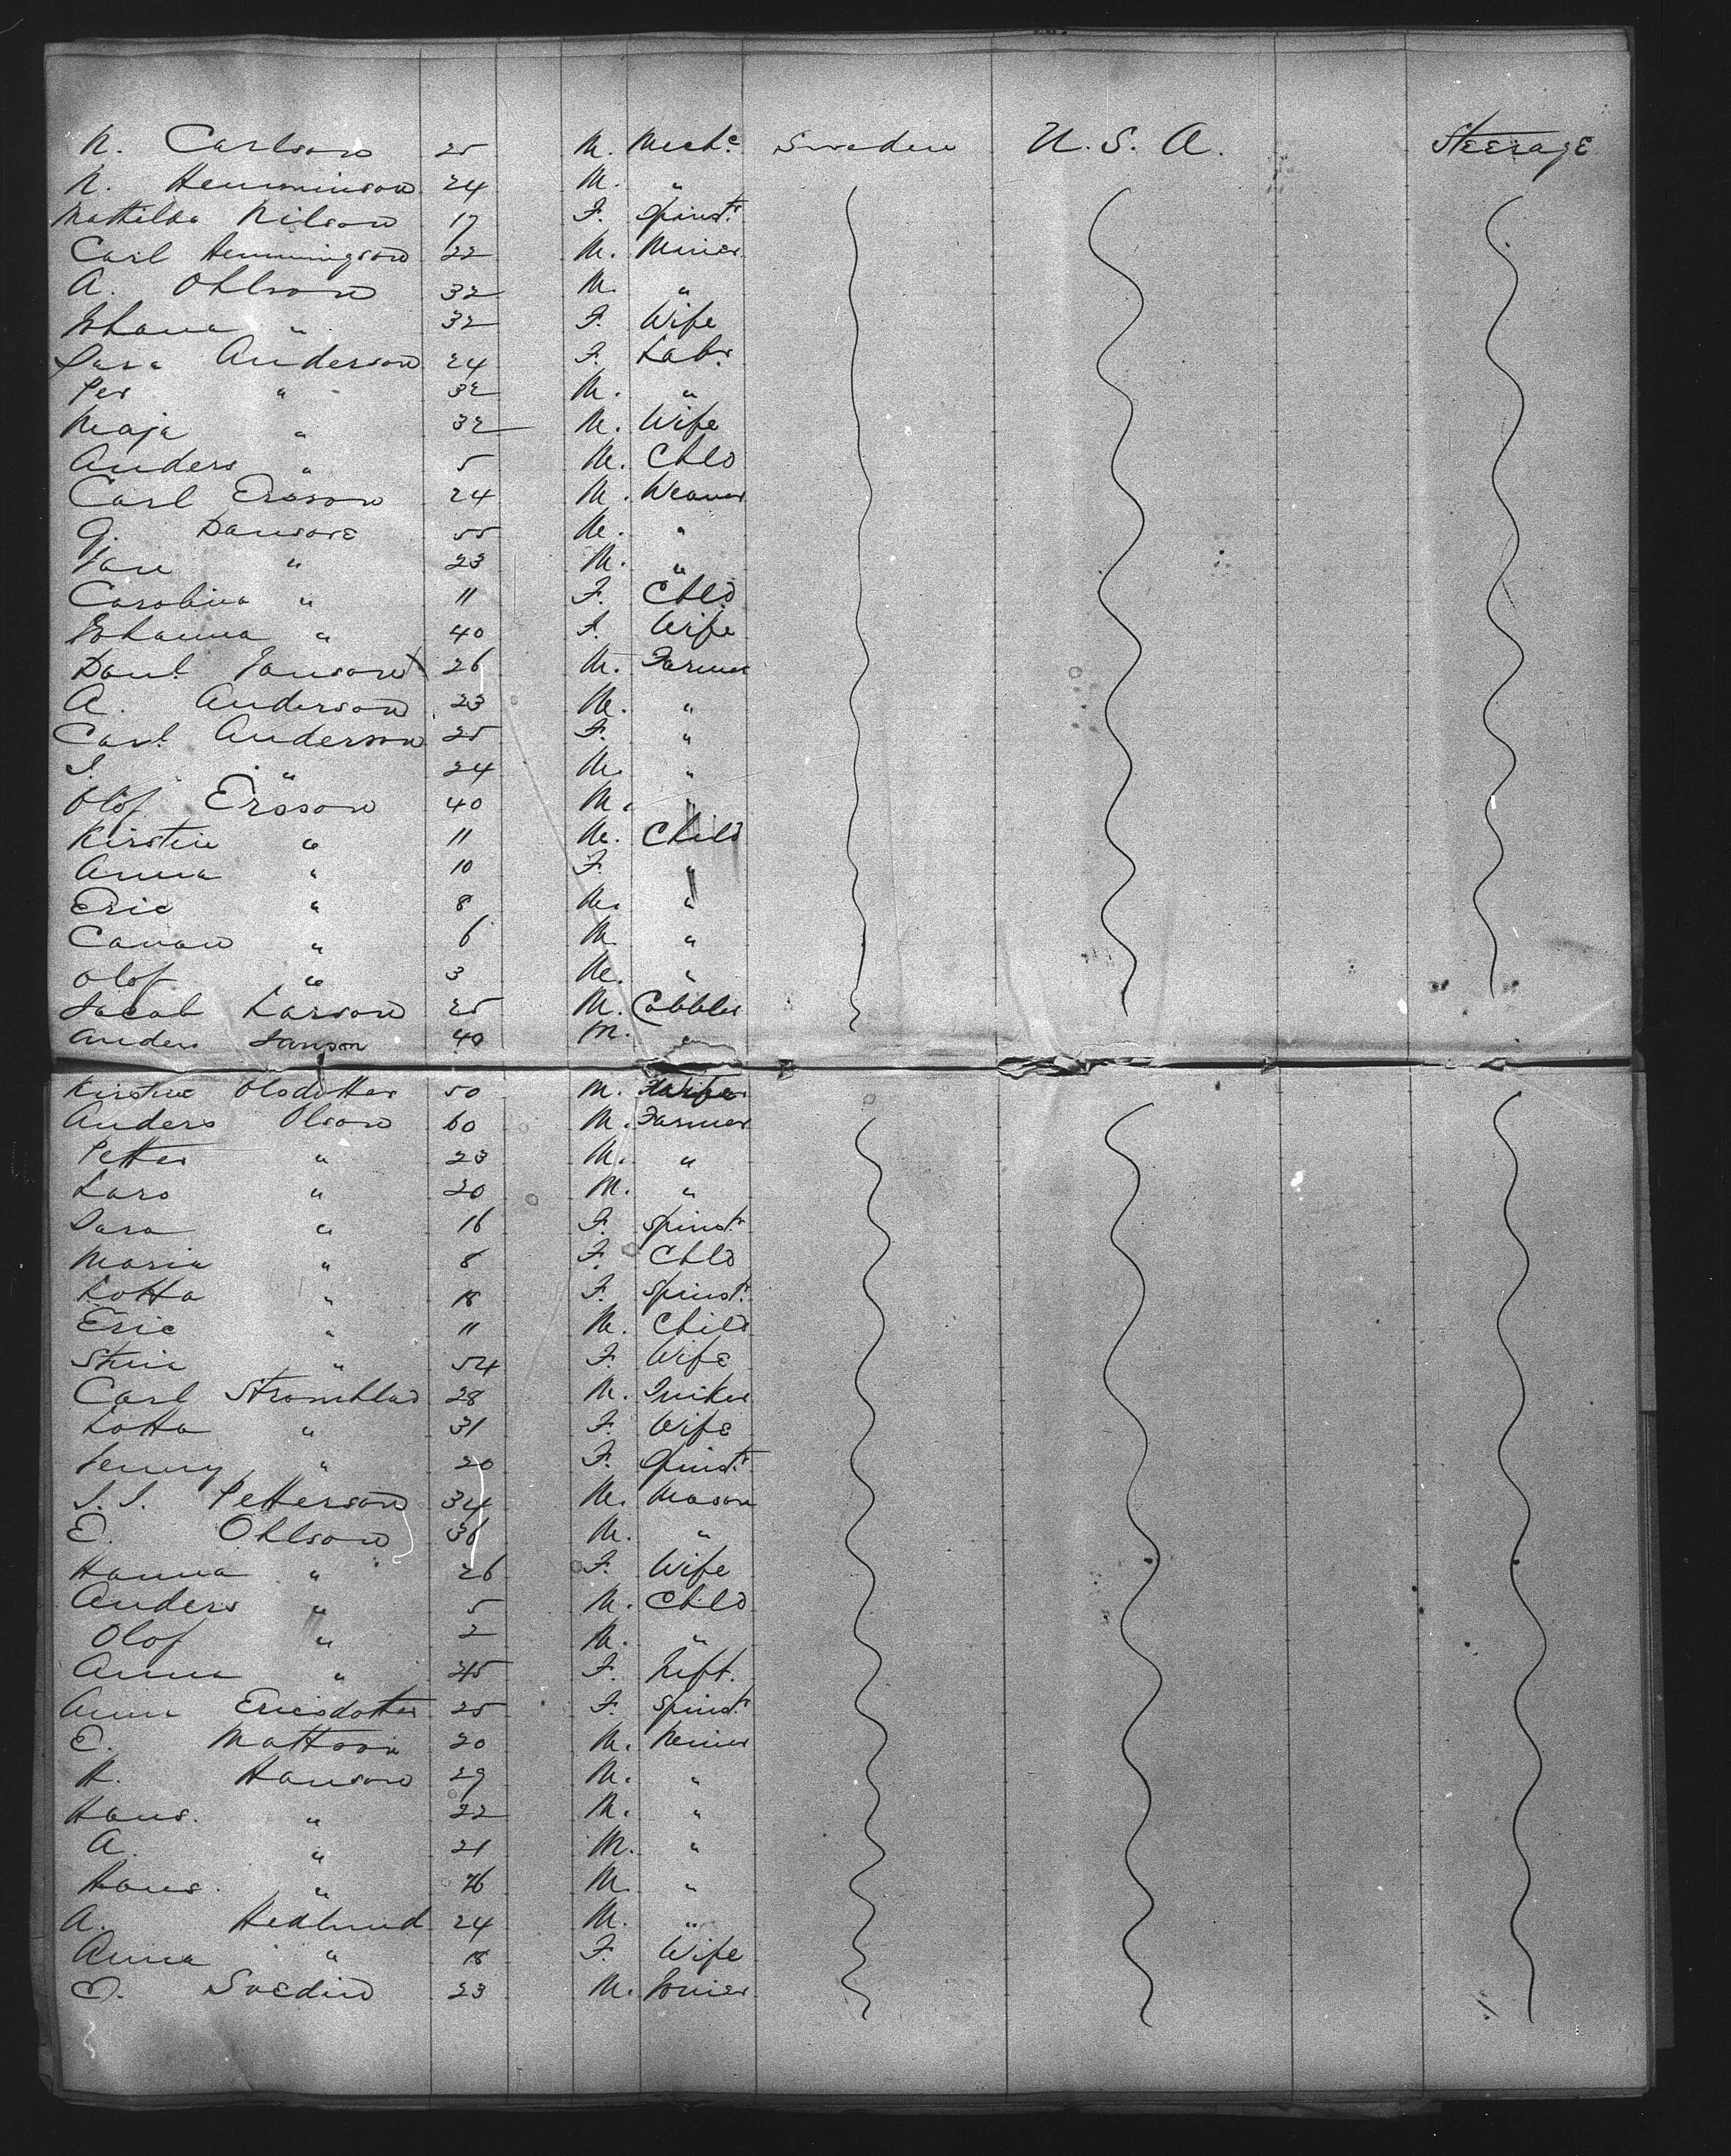 N. Carlson 25 M. Mech^c Sweden U. S. A. Steerage
N. Hemminson 24 M. "
Mathilda Nilson 17 F. Spinst^r
Carl Hemmingson 22 M. Miner
A. Ohlson 32 M. "
Johana " 32 F. Wife
Sara Anderson 24 F. Lab^r
Per " 32 M. "
Maja " 32 M. Wife
Anders " 5 M. Chld
Carl Ersson 24 M. Weaver
G. 55 M. "
" 23 M. "
Carolina " 11 F. Chld
Johanna " 40 F. Wife
Danl. Janson 26 M. Farmer
A. Anderson 23 M. "
Carl Anderson 25 F. "
" 24 M. "
Olof Ersson 40 M. "
Kirstin " 11 M. Child
Anna " 10 F. "
Eric " 8 M. "
" 6 M. "
Olof " 3 M. "
Jacob Larson 25 M. Cobbler
Anders Janson 40 M. "
Kirstin Olsdotter 50 M.
Anders Olson 60 M. Farmer
Petter " 23 M. "
Lars " 20 M. "
Sara " 16 F. Spinst^r
Maria " 8 F. Chld
Lotta " 18 F. Spinst^r
Eric " 11 M. Child
Stina " 54 F. Wife
Carl Stromblad 28 M.
Lotta " 31 F. Wife
Jenny " 20 F. Spinst^r
Petterson 34 M. Mason
E. Ohlson 36 M. "
Hanna " 26 F. Wife
Anders " 5 M. Chld
Olof " 2 M. "
Anna " 45 F.
Anna Ericsdotter 25 F. Spinst^r
E. Mattson 20 M. Miner
H. Hanson 29 M. "
Hans. " 22 M. "
A. " 21 M. "
Hans. " M. "
A. Hedlund 24 M. "
Anna " 18 F. Wife
O. Svedin 23 M.